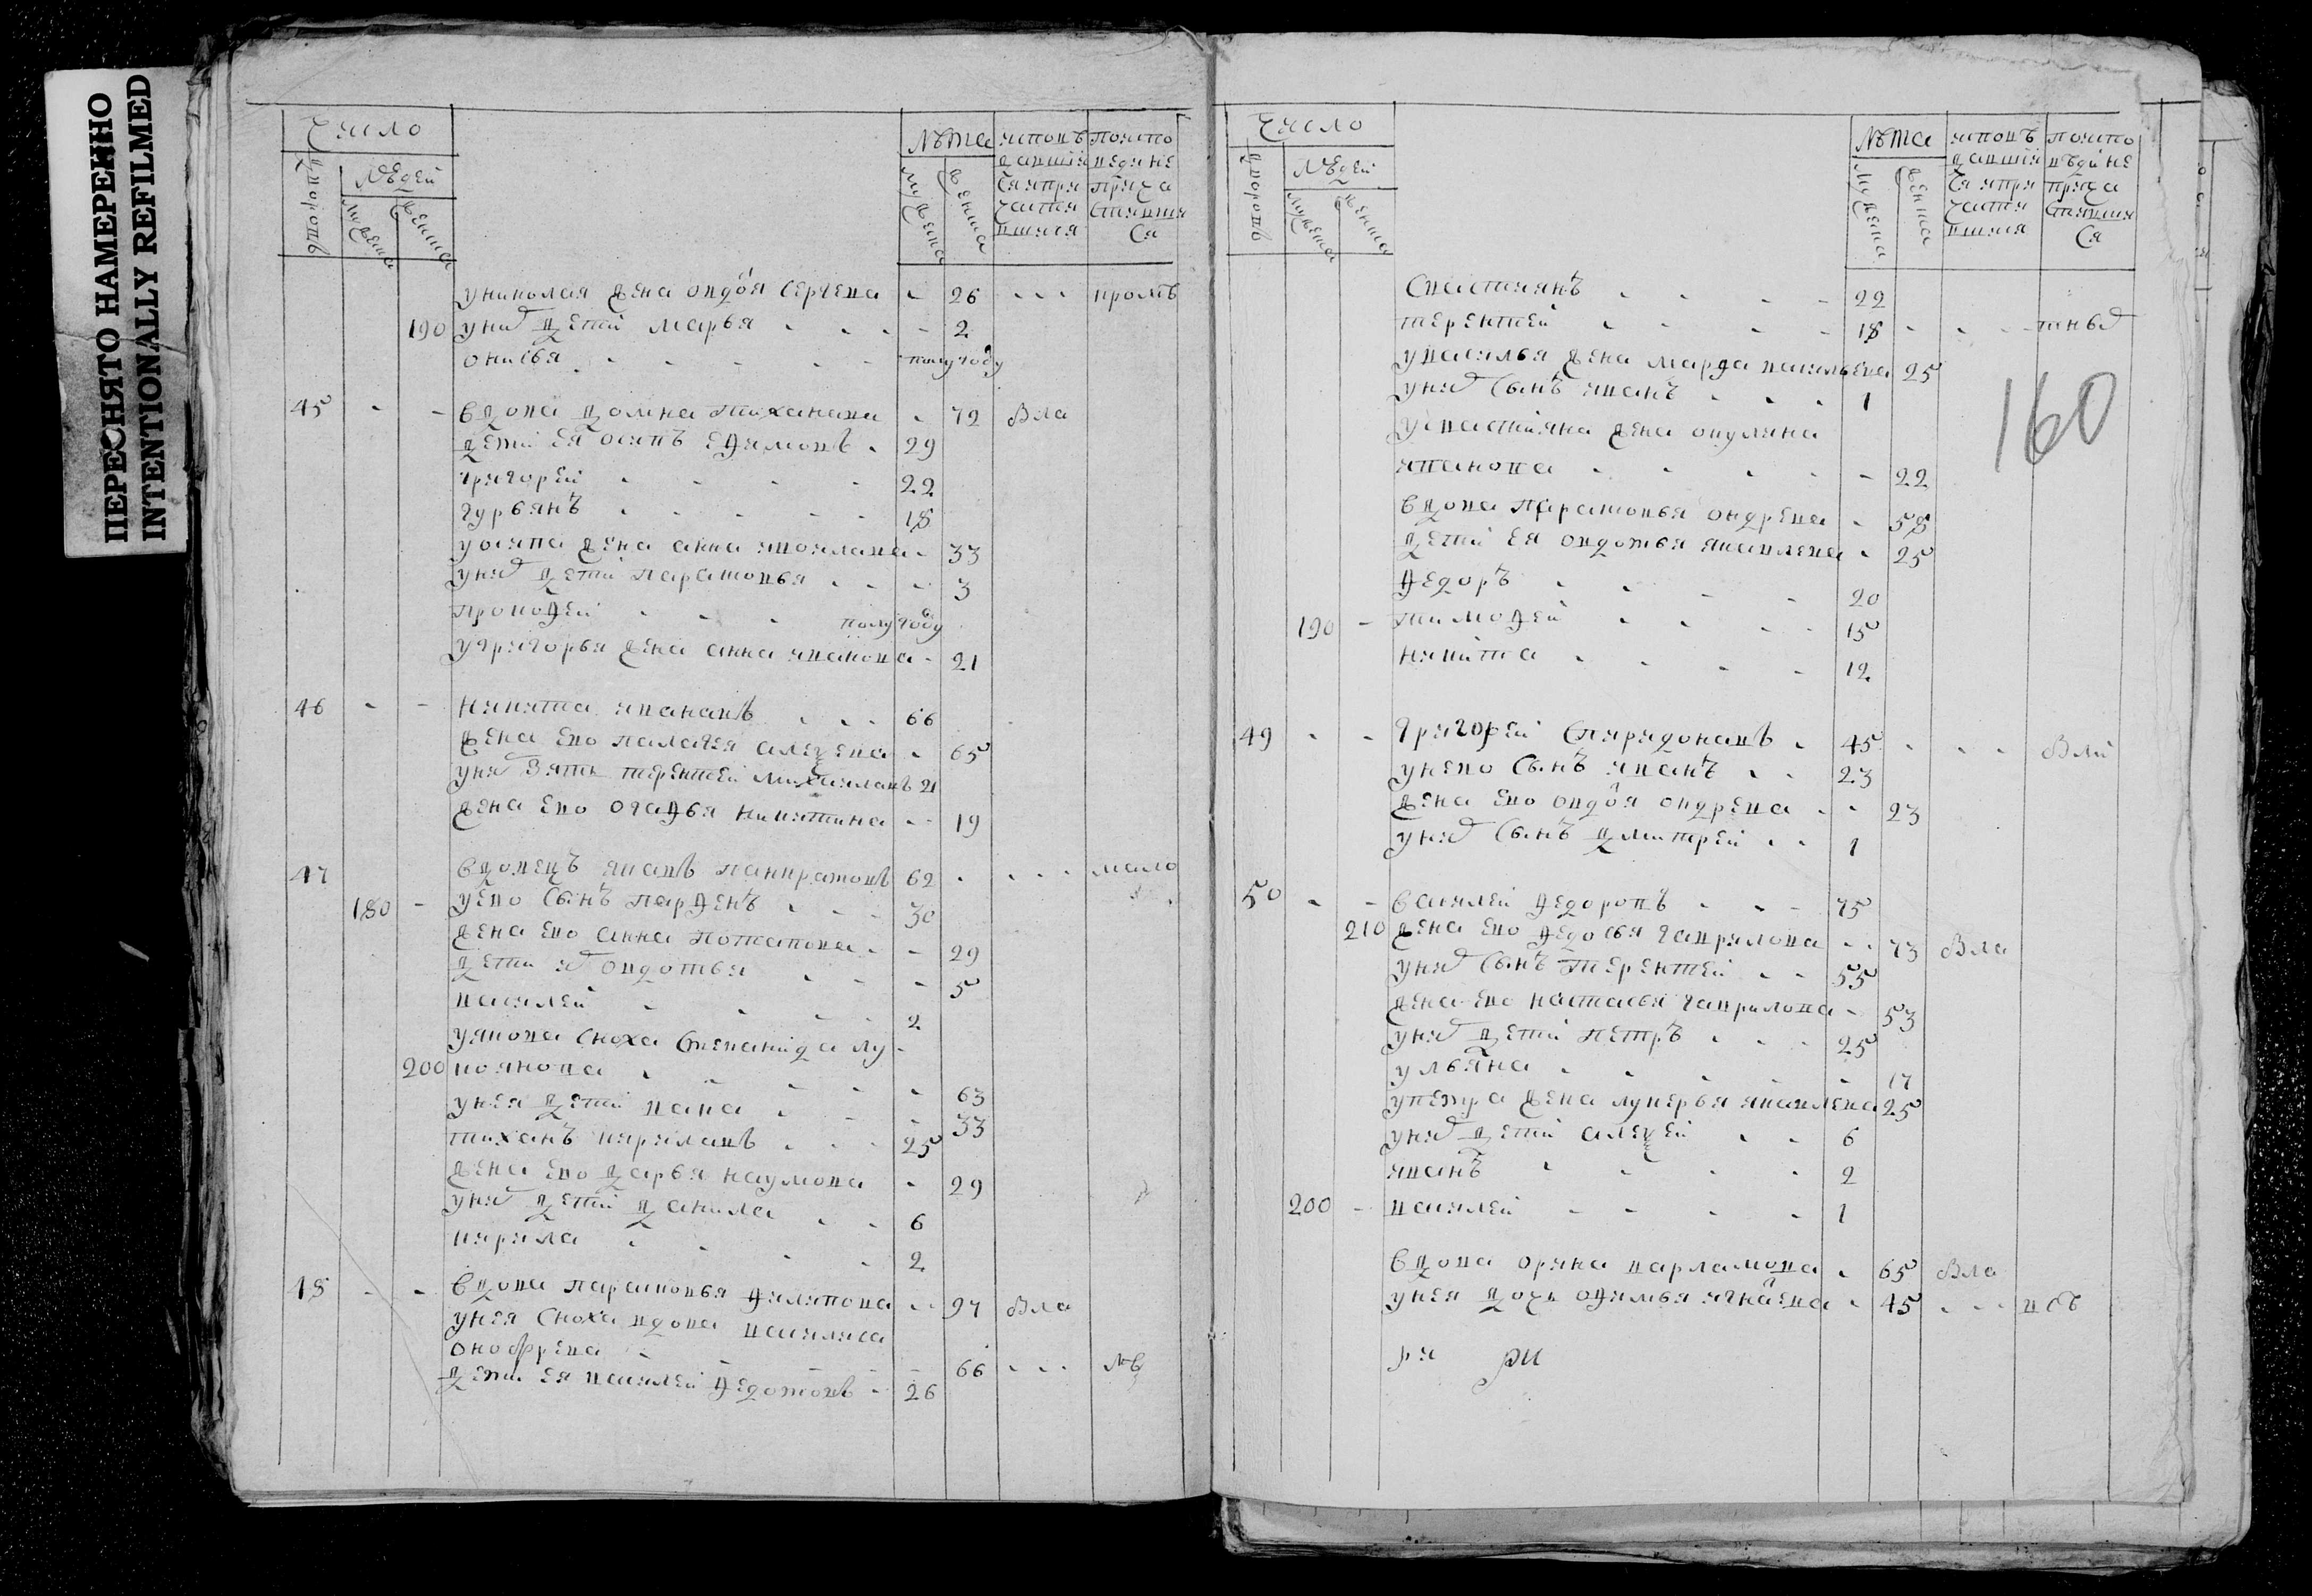 ПЕРЕСНЯТО НАМЕРЕННО
INTENTIONALLY REFILMED
число
дворовъ
людей
мужеска
женска
Лѣта
мужеска
женска
исповѣ
давшия
ся и при
частив
шияся
по испо
веди не
прича
стившия
ся
у николая жена овдотя сергева - 26 - - - кромѣ
190 у них дети марья - - - - 2
онисья - - - - полугоду
45 - - вдова домна тиханава - 72 Вла
дети ея осипъ ефимовъ - 29
григорей - - - - 22
гурьянъ - - - - 18
у осипа жена анна - 33
у них дети парасковья - - - 3
прокофей - - - полугоду
у григорья жена анна иванова - 21
46 - - никита иванавъ - - - 66
жена ево палагея алексева - 65
у них зять терентей михаилавъ 21
жена ево огафья никитина - - 19
47 вдовецъ якавъ панкратовъ 62 - - - - мало
180 - у ево сынъ парфенъ - - - 30
жена ево анна потапова - - 29
дети их овдотья - - - 5
василей - - - - 2
у якова сноха степанида лу-
200 коянова - - - - - 63
у нея дети - - - 33
тиханъ кирилавъ - - - 25
жена ево дарья наумова - 29
у них дети данила - - 6
кирила - - - - 2
48 - - вдова парасковья филипова - - 97 Вла
у нея сноха вдова василиса
онофрева - - - - - 66 - - -
дети ея василей федотовъ - 26
число
дворовъ
людей
мужеска
женска
Лѣта
мужеска
женска
исповѣ
давшия
ся и при
частив
шияся
по испо
вѣди не
прича
стившия
ся
160
савастиянъ - - - - 22
терентей - - - - 18 - - -
у василья жена марфа васильева 25
у них сынъ иванъ - - - 1
у савастияна жена окулина
иванова - - - - - 22
вдова парасковья ондрева - 58
дети ея овдотья - 25
федоръ - - - - 20
190 - тимофей - - - - 15
никита - - - - 12
49 - - григорей спиридонавъ - 45 - - - Вли
у нево сынъ иванъ - - 23
жена ево овдотя ондрева - - 23
у них сынъ дмитрей - - 1
50 - - василей федоровъ - - - 75
210 жена ево федосья гаврилова - - 73 Вла
у них сынъ терентей - - 55
жена ево настасья гаврилова - 53
у них дети петръ - - - 25
ульяна - - - - - 17
у петра жена лукерья 25
у них дети алексей - - 6
иванъ - - - - 2
200 - василей - - - - 1
вдова орина варламова - 65 Вла
у нея дочь офимья игнатева - 45 - - -
ри ри